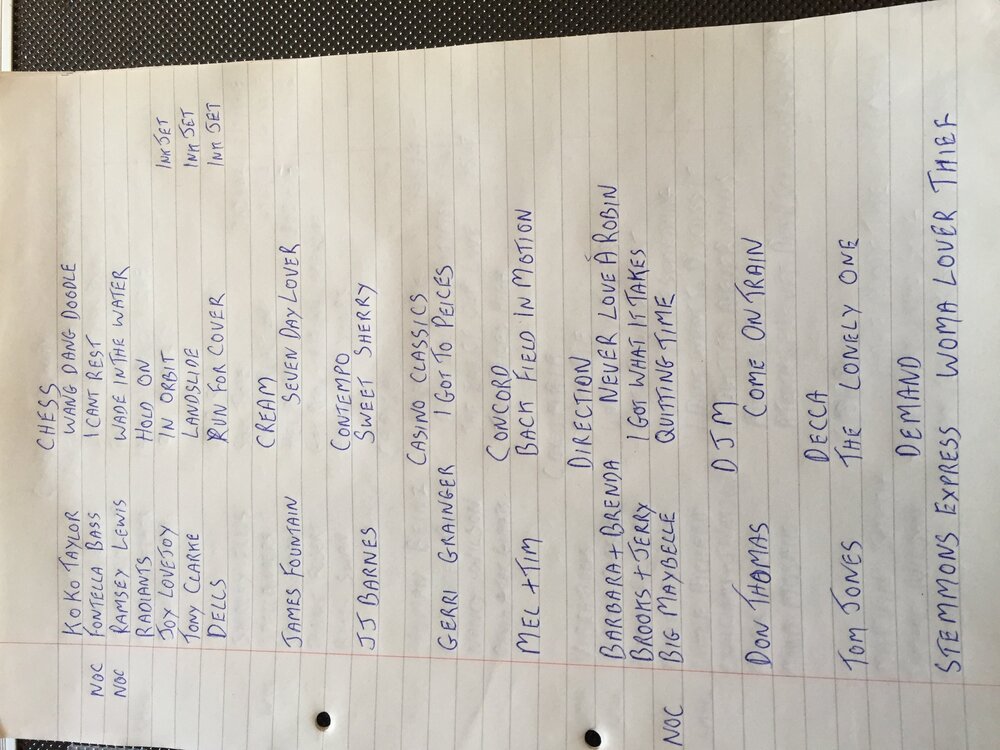 CHESS
KOKO TAYLOR WANG DANG DOODLE
NOC FONTELLA BASS I CANT REST
NOC RAMSEY LEWIS WADE IN THE WATER
RADIANTS HOLD ON
JOY LOVEJOY IN ORBIT INK JET
TONY CLARKE LANDSLIDE INK JET
DELLS RUN FOR COVER INK JET
CREAM
JAMES FOUNTAIN SEVEN DAY LOVER
CONTEMPO
JJ BARNES SWEET SHERRY
CASINO CLASSICS
GERRI GRAINGER I GOT TO PEICES
CONCORD
MEL + TIM BACK FIELD IN MOTION
DIRECTION
BARBARA + BRENDA NEVER LOVE A ROBIN
BROOKS + JERRY I GOT WHAT IT TAKES
NOC BIG MAYBELLE QUITTING TIME
DJM
DON THOMAS COME ON TRAIN
DECCA
TOM JONES THE LONELY ONE
DEMAND
STEMMMONS EXPRESS WOMA LOVER THIEF